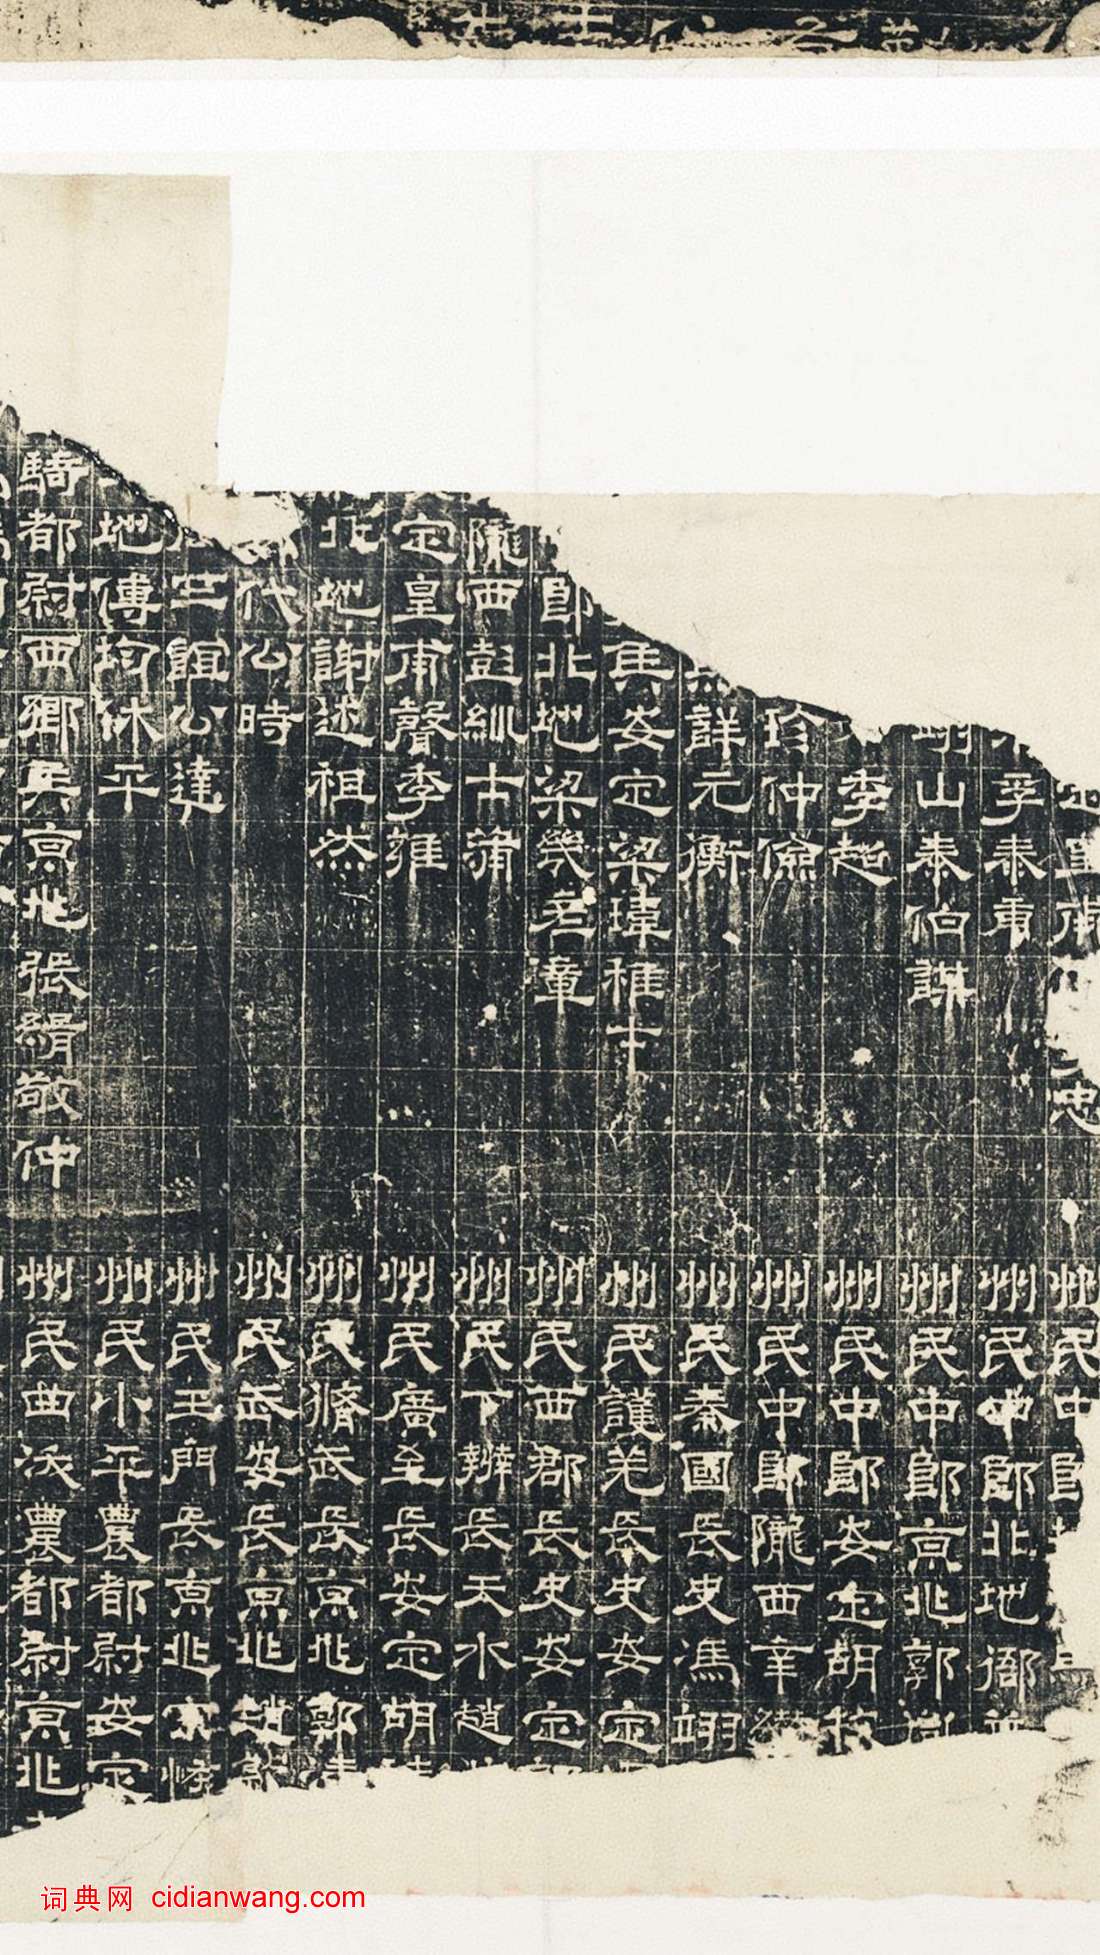 忠
孚泰甫
山泰伯謀
季超
珍仲儉
詳元衡
侯安定梁瑋稚才
郎北地梁幾彥章
隴西彭紃士蒲
定皇甫聲季雍
北地謝述祖然
代公時
竺誼公達
地傅均休平
騎都尉西鄉侯京兆張緝敬仲
州民中郎
州民中郎北地衙
州民中郎京兆郭胤
州民中郎安定胡牧
州民中郎隴西辛
州民秦國長史馮翊
州民護羌長史安定
州民西郡長史安定
州民下辨長天水趙
州民廣至長安定胡
州民脩武長京兆郭
州民武安長京兆趙
州民玉門長京兆宋
州民小平農都尉安定
州民曲沃農都尉京兆
词典网 cidianwang.com